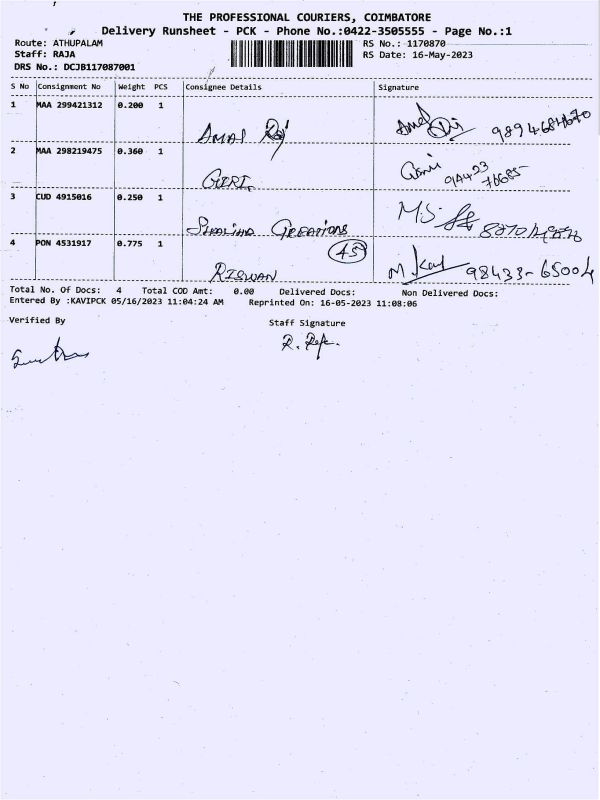 THE PROFESSIONAL COURIERS, COIMBATORE
Delivery Runsheet - PCK - Phone No.:0422-3505555 - Page No.:1
Route: ATHUPALAM RS No.: 1170870
Staff: RAJA RS Date: 16-May-2023
DRS No.: DCJB117087001
S No Consignment No Weight PCS Consignee Details Signature
1 MAA 299421312 0.200 1
AMAL Raj Amal
2 MAA 298219475 0.360 1
GIRI 94423 76685
3 CUD 4915016 0.250 1 M.S.
CREATIONS
4 PON 4531917 0.775 1 45
RISWAN M. 98433-65004
Total No. Of Docs: 4 Total COD Amt: 0.00 Delivered Docs: Non Delivered Docs:
Entered By :KAVIPCK 05/16/2023 11:04:24 AM Reprinted On: 16-05-2023 11:08:06
Verified By Staff Signature